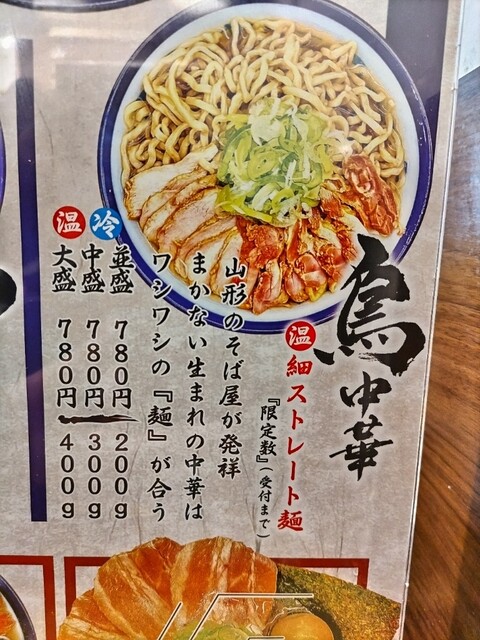 鳥中華
温 細ストレート麺
『限定数』(受付まで)
山形のそば屋が発祥
まかない生まれの中華は
ワシワシの『麺』が合う
冷 温
並盛 780円 200g
中盛 780円 300g
大盛 780円 400g